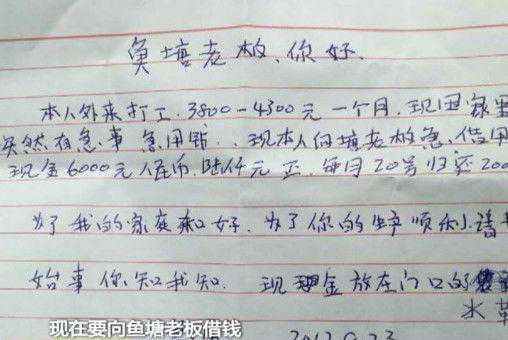 鱼塘老板、你好.
本人外来打工.3800-4300元一个月.现因家里
突然有急事 急用钱..现本人向塘老板急.借用
现金6000元人民币.陆仟元正.每月20号归还200
为了我的家庭和好.为了你的生产顺利.请
始事你知我知. 现 金放在门口的
水草
现在要向鱼塘老板借钱